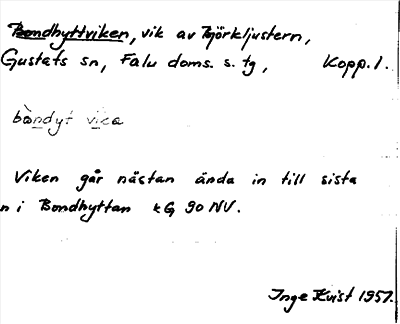 Bondhyttviken, vik av Björkljustern,
Gustafs sn, Falu doms. s. tg, Kopp. l.
bòndyt vica
Viken går nästan ända in till sista
n i Bondhyttan kG 90 NV.
Inge Kvist 1957.